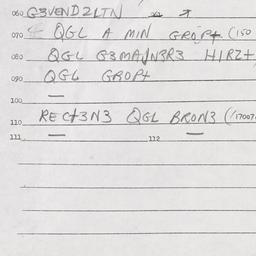 060 G3VEND2LTN
070 QGL A MIN GROP+ (150
080 QGL G3MAJN3R3 H1RZ+
090 QGL GROP+
100
110 REC+3N3 QGL BRON3 (17007
111 112